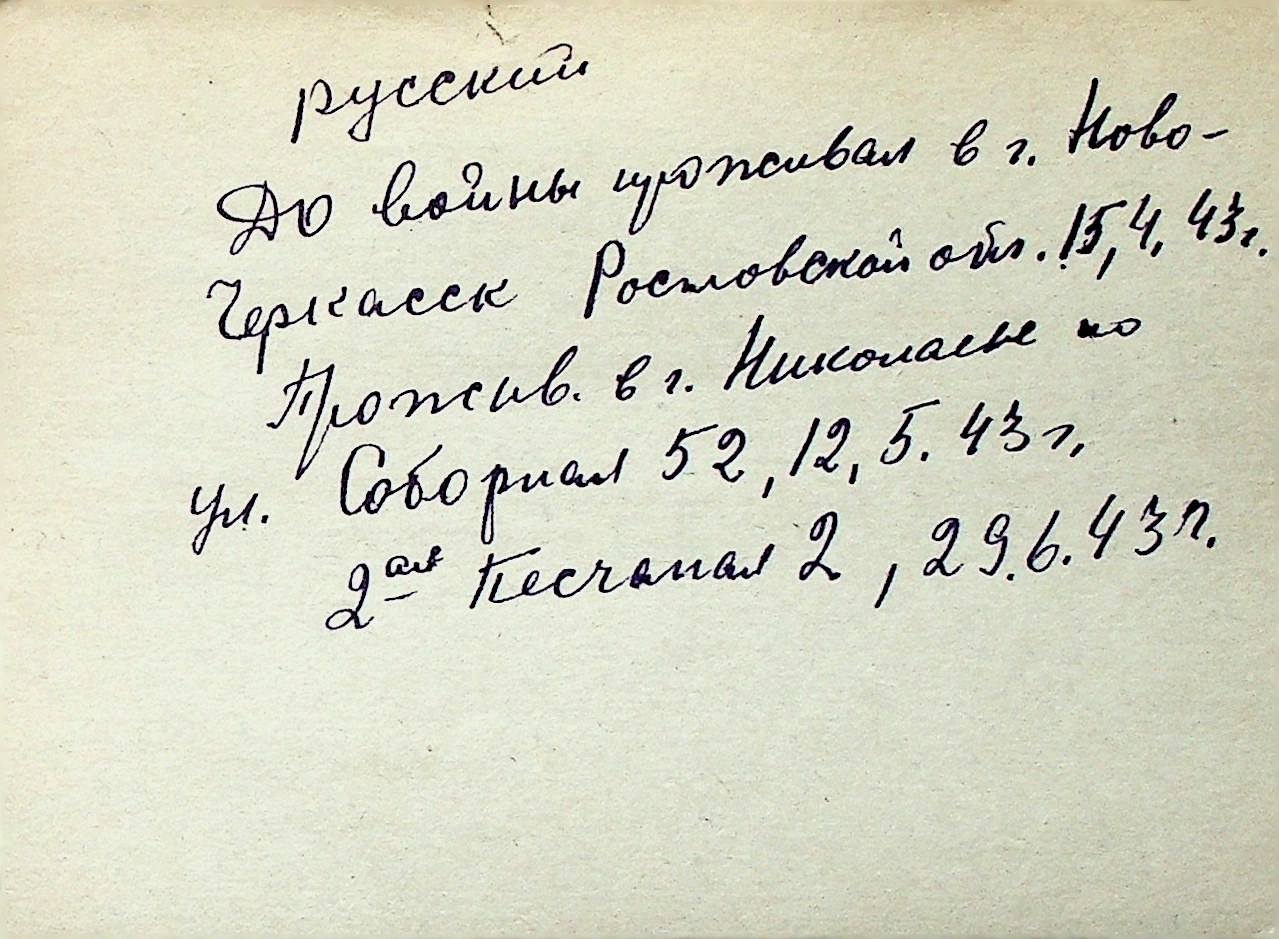 русский
До войны проживал в г. Ново-
черкасск Ростовской обл. 15,4,43г.
Прожив. в г. Николаеве по
ул. Соборная 52, 12,5.43г.
2ая Песчаная 2, 29.6.43г.